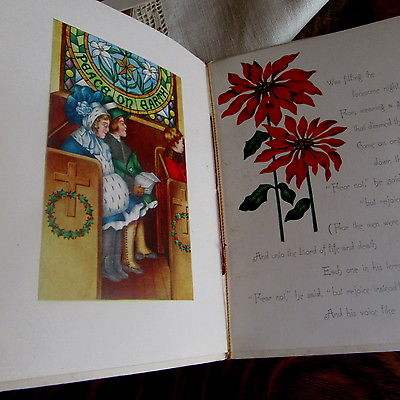 PEACE ON EARTH
Was filling the
lonesome night
For, moaning
that dimmed the
Came an
down the
"Fear not," he said
"but rejoice
(For the men were
And unto the Lord of life and death
Each one in his
"Fear not," he said, "but rejoice instead
And his voice like